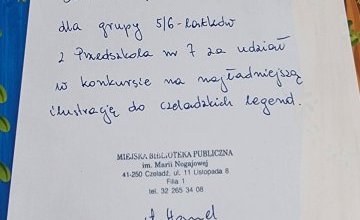 dla grupy 5/6-latków
z Przedszkola nr 7 za udział
w konkursie na najładniejszą
ilustrację do czeladzkich legend.
MIEJSKA BIBLIOTEKA PUBLICZNA
im. Marii Nogajowej
41-250 Czeladź, ul. 11 Listopada 8
Filia 1
tel. 32 265 34 08